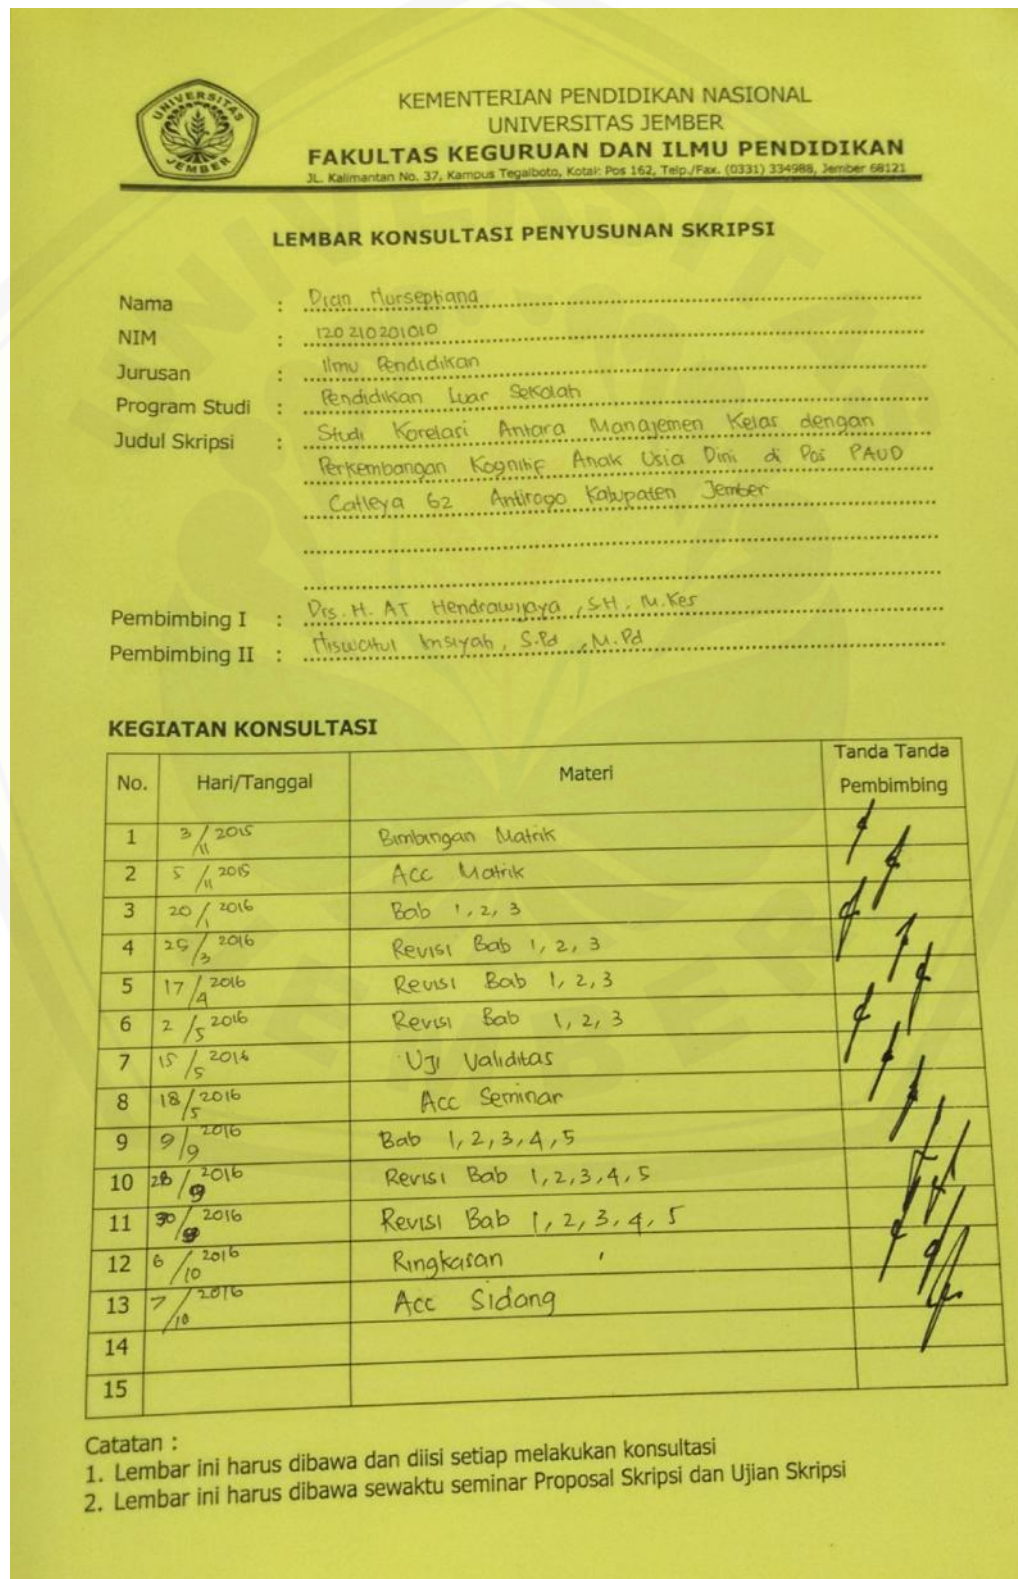 UNIVERSITAS
JEMBER
KEMENTERIAN PENDIDIKAN NASIONAL
UNIVERSITAS JEMBER
FAKULTAS KEGURUAN DAN ILMU PENDIDIKAN
JL. Kalimantan No. 37, Kampus Tegalboto, Kotak Pos 162, Telp./Fax. (0331) 334988, Jember 68121
LEMBAR KONSULTASI PENYUSUNAN SKRIPSI
Nama : Dian Nurseptiana
NIM : 120210201010
Jurusan : Ilmu Pendidikan
Program Studi : Pendidikan Luar Sekolah
Judul Skripsi : Studi Korelasi Antara Manajemen Kelas dengan
Perkembangan Kognitif Anak Usia Dini di Pos PAUD
Catleya 62 Antirogo Kabupaten Jember
Pembimbing I : Drs. H. AT Hendrawijaya, S.H, M.Kes
Pembimbing II : Niswatul Imsiyah, S.Pd, M.Pd
KEGIATAN KONSULTASI
No. Hari/Tanggal Materi Tanda Tanda Pembimbing
1 3/11 2015 Bimbingan Matrik
2 5/11 2015 Acc Matrik
3 20/1 2016 Bab 1, 2, 3
4 25/3 2016 Revisi Bab 1, 2, 3
5 17/4 2016 Revisi Bab 1, 2, 3
6 2/5 2016 Revisi Bab 1, 2, 3
7 15/5 2016 Uji Validitas
8 18/5 2016 Acc Seminar
9 9/9 2016 Bab 1, 2, 3, 4, 5
10 28/9 2016 Revisi Bab 1, 2, 3, 4, 5
11 30/9 2016 Revisi Bab 1, 2, 3, 4, 5
12 6/10 2016 Ringkasan
13 7/10 2016 Acc Sidang
14
15
Catatan :
1. Lembar ini harus dibawa dan diisi setiap melakukan konsultasi
2. Lembar ini harus dibawa sewaktu seminar Proposal Skripsi dan Ujian Skripsi